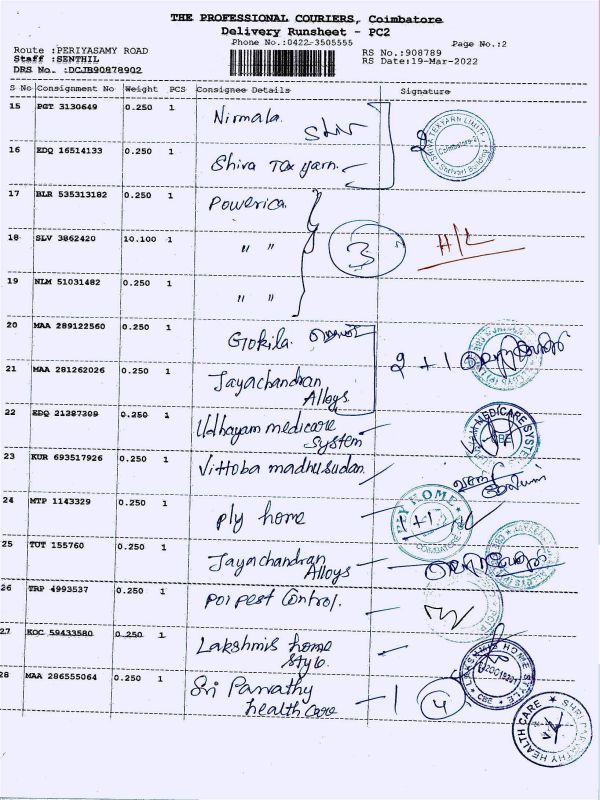 THE PROFESSIONAL COURIERS, Coimbatore
Delivery Runsheet - PC2
Phone No.:0422-3505555
Page No.:2
Route :PERIYASAMY ROAD
RS No.:908789
Staff :SENTHIL
RS Date:19-Mar-2022
DRS No. :DCJB90878902
S No Consignment No Weight PCS Consignee Details Signature
15 PGT 3130649 0.250 1 Nirmala.
16 EDQ 16514133 0.250 1 Shiva Tex yarn.
SHIVA TEXYARN LIMITED
Coimbatore
17 BLR 535313182 0.250 1 Powerica
18 SLV 3862420 10.100 1 " "
3
H/L
19 NLM 51031482 0.250 1 " "
20 MAA 289122560 0.250 1 Gokila.
21 MAA 281262026 0.250 1 Jayachandran Alloys.
2 + 1
22 EDQ 21387309 0.250 1 Udhayam medicare System
MEDICARE SYSTEM
CBE
23 KUR 693517926 0.250 1 Vittoba madhusudan.
24 MTP 1143329 0.250 1 ply home
PLY HOME
COIMBATORE
1+1
25 TUT 155760 0.250 1 Jayachandran Alloys
26 TRP 4993537 0.250 1 por pest control.
27 KOC 59433580 0.250 1 Lakshmis home style.
LAKSHMIS HOME STYLE
CBE
28 MAA 286555064 0.250 1 Sri Parvathy health care
1 4
SHRI PARVATHY HEALTH CARE